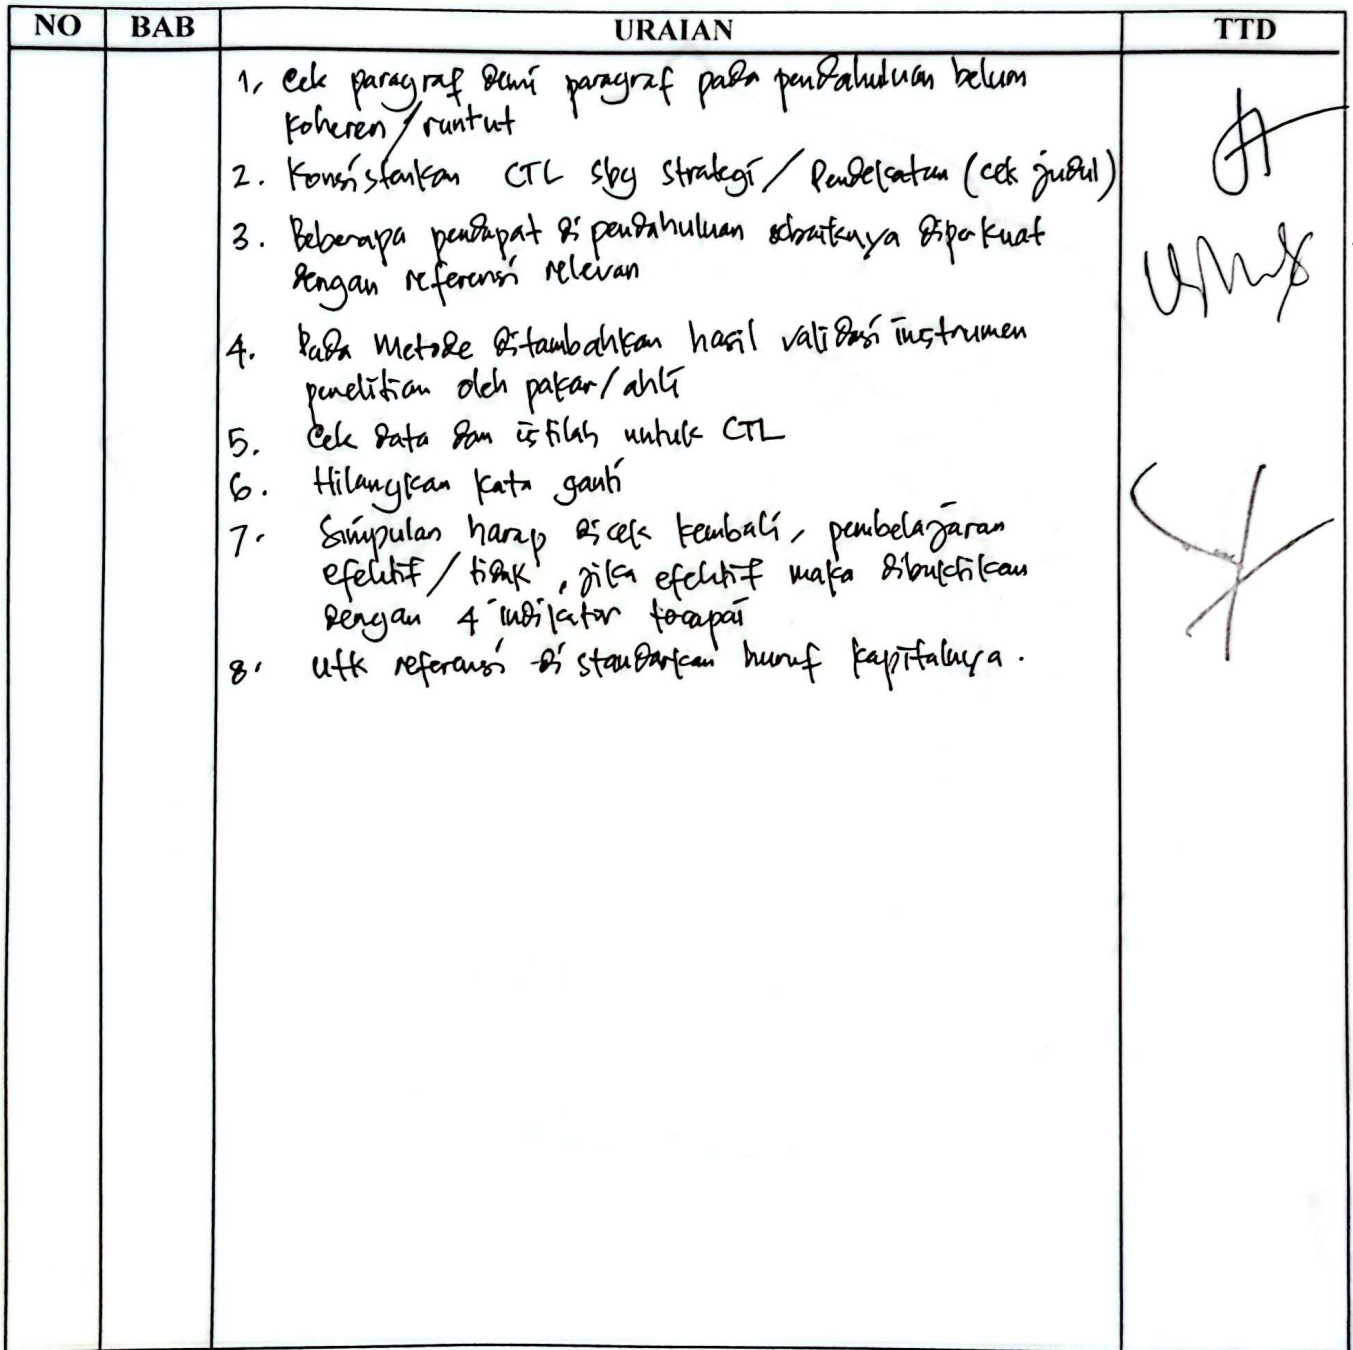 NO BAB URAIAN TTD
1, Cek paragraf demi paragraf pada pendahuluan belum
koheren / runtut
2. Konsistenkan CTL sbg strategi / Pendekatan (cek judul)
3. Beberapa pendapat di pendahuluan sebaiknya diperkuat
dengan referensi relevan
4. Pada Metode ditambahkan hasil validasi instrumen
penelitian oleh pakar/ahli
5. Cek data dan istilah untuk CTL
6. Hilangkan kata ganti
7. Simpulan harap dicek kembali, pembelajaran
efektif / tidak, jika efektif maka dibuktikan
dengan 4 indikator tercapai
8. utk referensi di standarkan huruf kapitalnya.